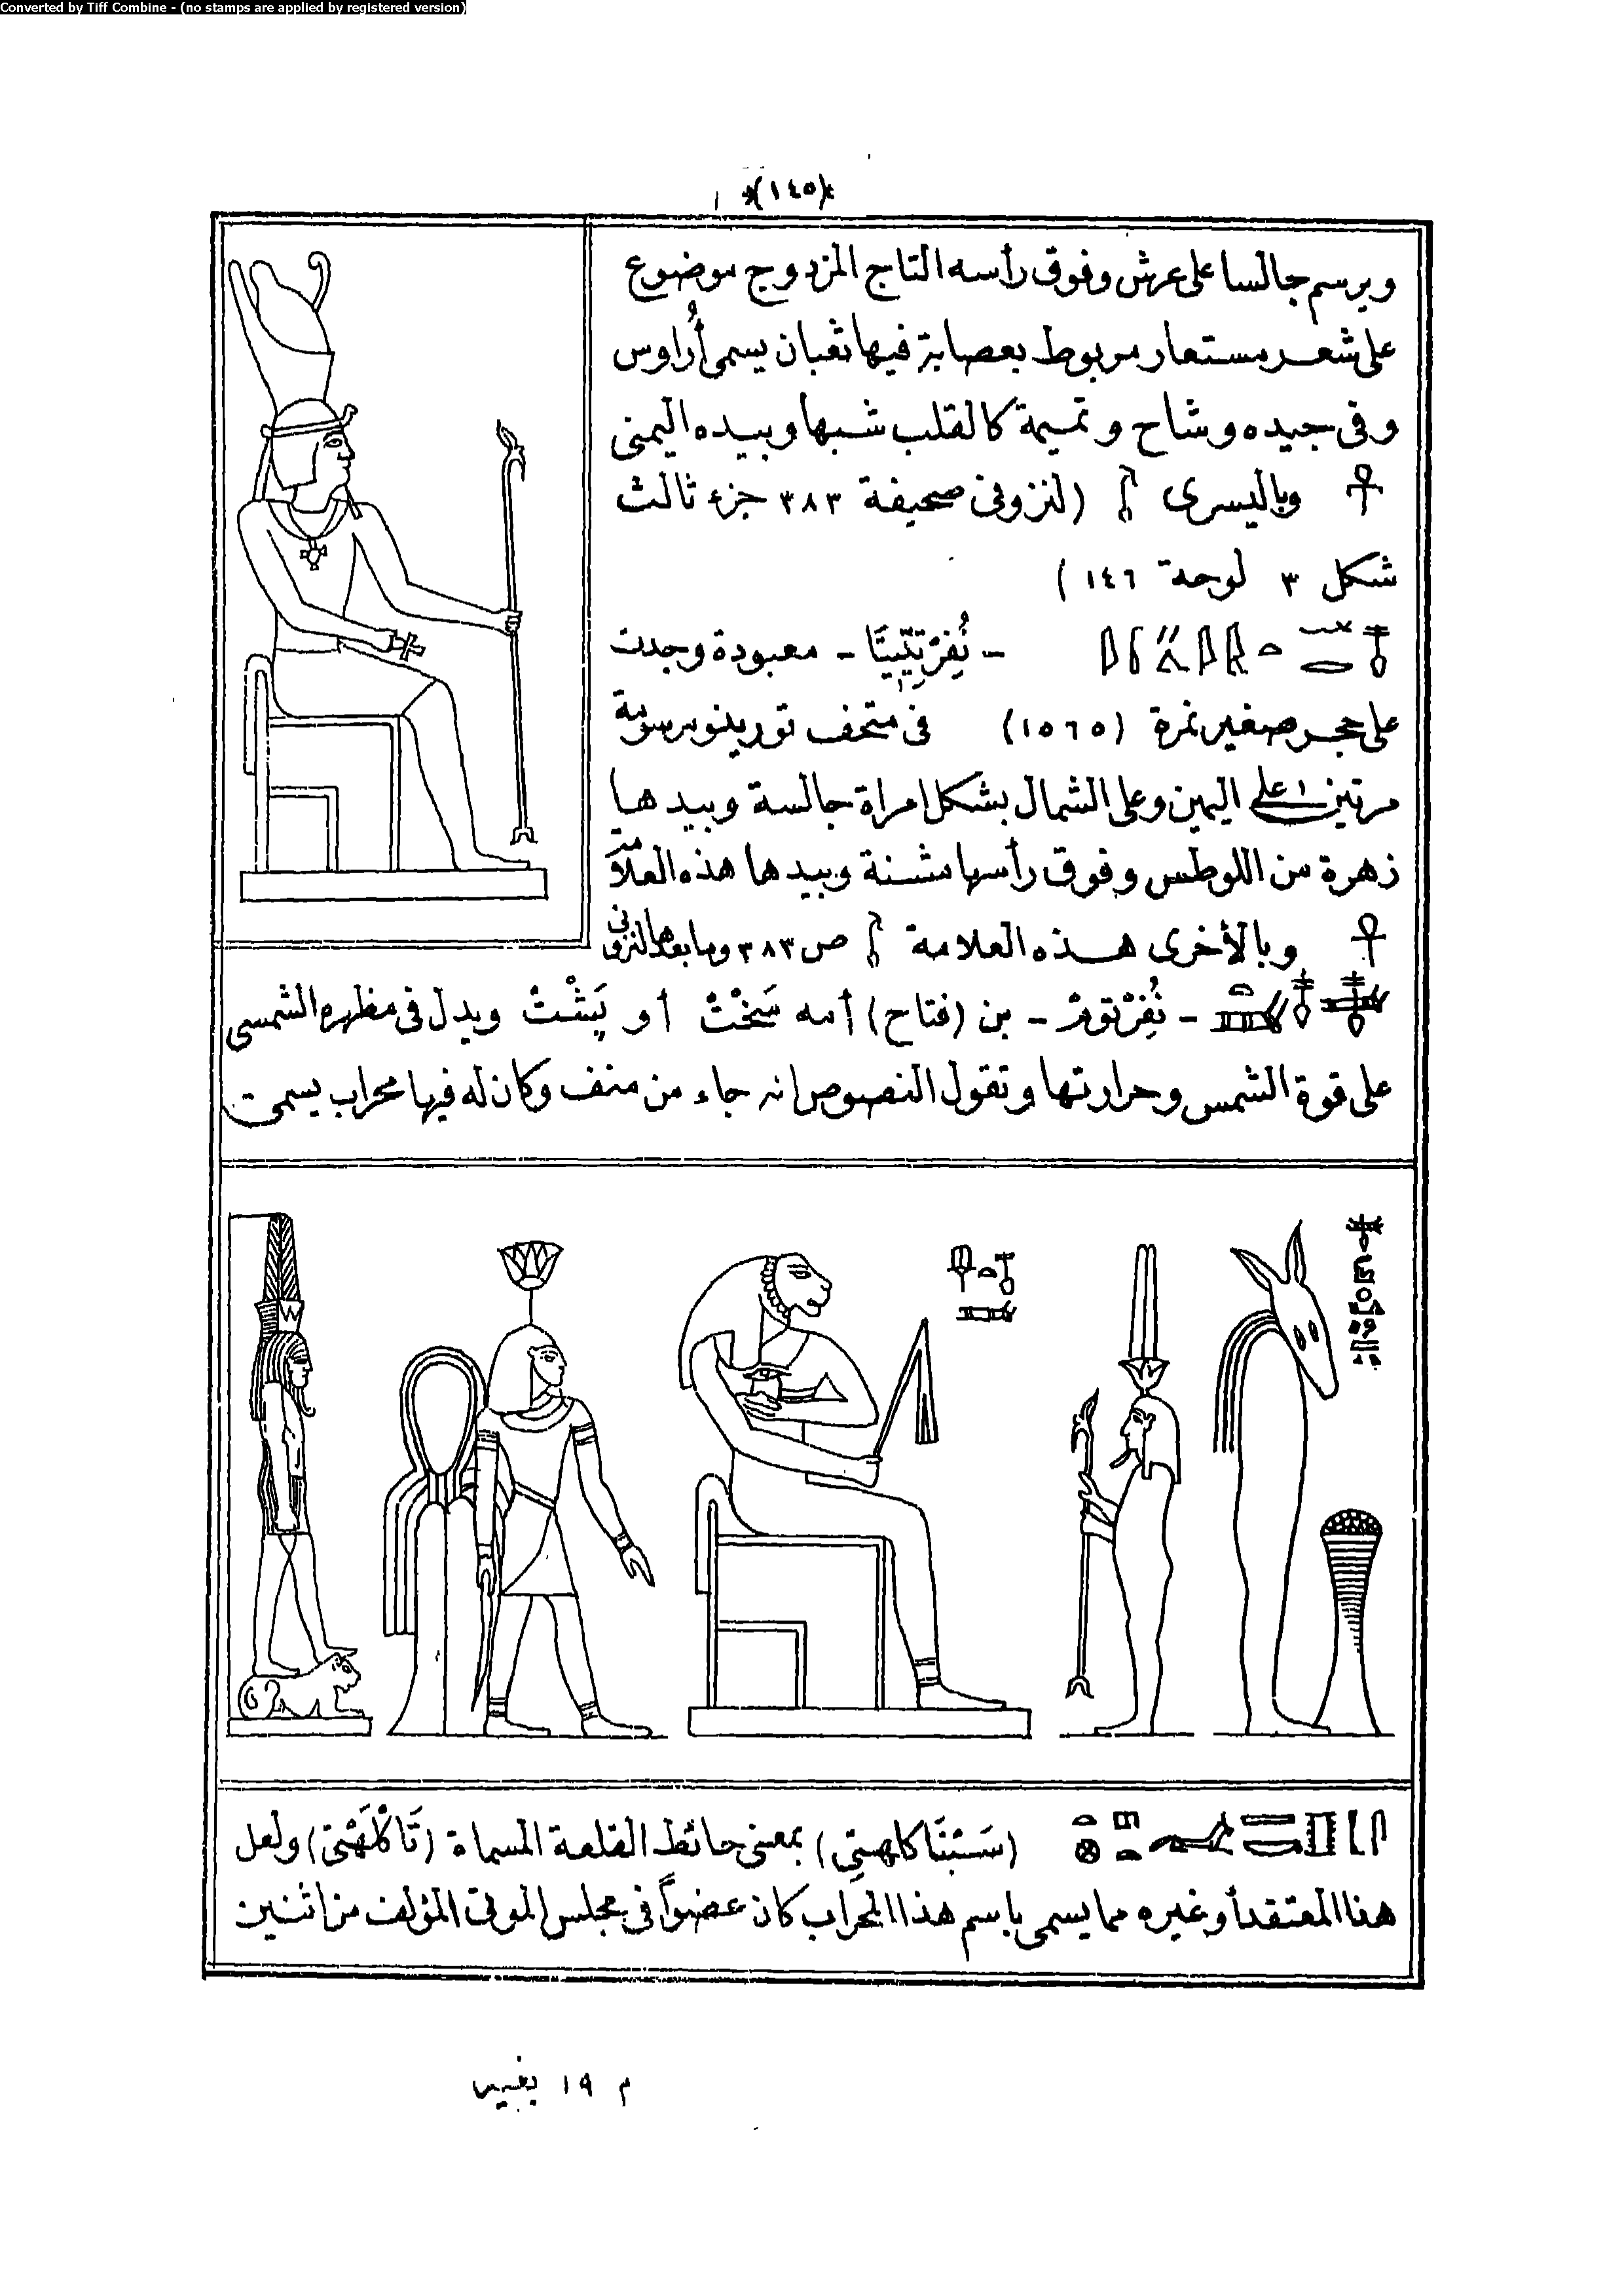 Converted by Tiff Combine - (no stamps are applied by registered version)
(١٤٥)
ويرسم جالسا على عرش وفوق رأسه التاج المزدوج موضوع
على شعر مستعار مربوط بعصابة فيها ثعبان يسمى أُراوس
وفى جيده وشاح وتميمة كالقلب شبها وبيده اليمنى
☥ وباليسرى (لنزونى صحيفة ٣٨٣ جزء ثالث
شكل ٣ لوحة ١٤٦)
- معبودة وجدت
على حجر صغير نمرة (١٥٦٥) فى متحف تورينو مرسومة
مرتين على اليمين وعلى الشمال بشكل امراة جالسة وبيدها
زهرة من اللوطس وفوق رأسها مشنة وبيدها هذه العلامة
☥ وبالأخرى هذه العلامة ص ٣٨٣ وما بعدها لنزونى
- نُفِرْتومْ - بن (فتاح) أمه سَخْتْ أو پَشْتْ ويدل فى مظهره الشمسى
على قوة الشمس وحرارتها وتقول النصوص انه جاء من منف وكان له فيها محراب يسمى
(سَتبْنَا كلهتِى) بمعنى حائط القلعة المسماة (تَاكْلَهْتِى) ولعل
هذا المعتقد أو غيره مما يسمى باسم هذا المحراب كان عضواً فى مجلس الموتى المؤلف من اثنين
م ١٩